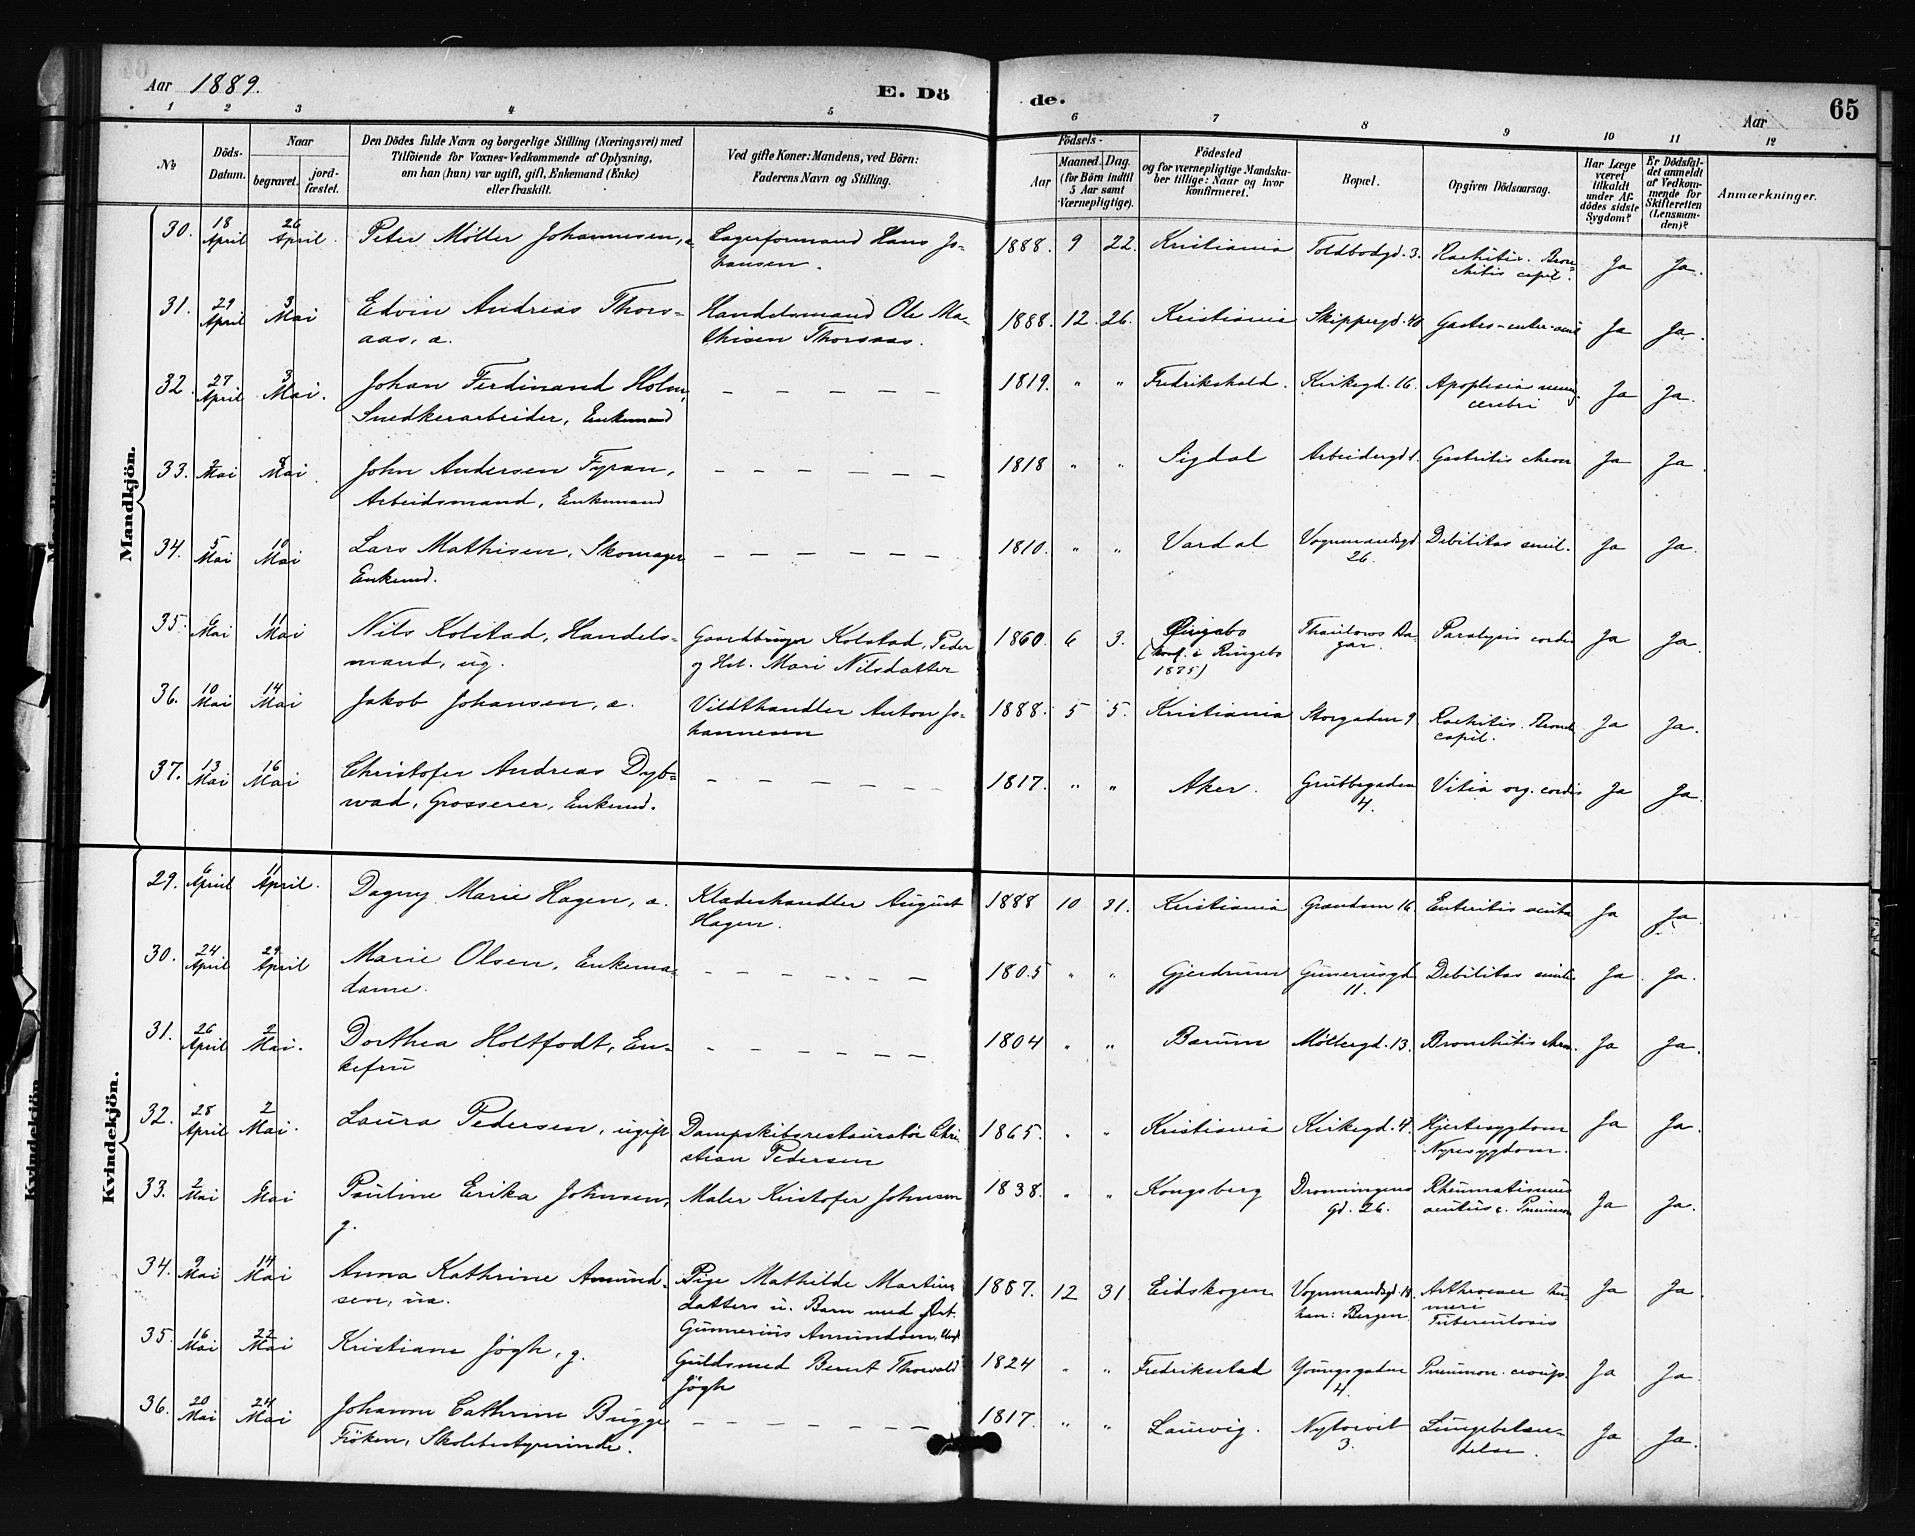 Aar 1889.
E. Dö
de.
Aar
65
1 2 3 4 5 6 7 8 9 10 11 12
№
Döds-Datum.
Naar
begravet.
jordfæstet.
Den Dödes fulde Navn og borgerlige Stilling (Næringsvei) med
Tilföiende for Voxnes-Vedkommende af Oplysning,
om han (hun) var ugift, gift, Enkemand (Enke)
eller fraskilt.
Ved gifte Koner: Mandens, ved Börn:
Faderens Navn og Stilling.
Födsels-
Aar
Maaned. Dag.
(for Börn indtil
5 Aar samt
Værnepligtige).
Födested
og for værnepligtige Mandskaber tillige: Naar og hvor
konfirmeret.
Bopæl.
Opgiven Dödsaarsag.
Har Læge
været
tilkaldt
under Afdödes sidste
Sygdom?
Er Dödsfaldet anmeldt
af Vedkommende for
Skifteretten
(Lensmanden)?
Anmærkninger.
Mandkjön.
30. 18 April 26 April. Peter Möller Johannesen, e. Lagerformand Hans Johansen. 1888. 9 22. Kristiania Toldbodgd. 3. Rachitis. Bronchitis capil. Ja Ja.
31. 29 April 3 Mai Edvin Andreas Thorsaas, a. Handelsmand Ole Mathisen Thorsaas. 1888. 12. 26. Kristiania Skippergd. 40 Gastro-enter-acut Ja Ja.
32. 27 April 3 Mai. Johan Ferdinand Holm, Snedkerarbeider, Enkemand — — — — — 1819. " " Fredrikshald. Kirkegd. 16. Apoplexia cerebri Ja Ja.
33. 2 Mai 8 Mai. John Andersen Fyran, Arbeidsmand, Enkemand — — — — — — 1818 " " Sigdal Arbeidergd 1. Gastritis chron Ja Ja
34. 5 Mai 10 Mai Lars Mathisen, Skomager Enkemd. — — — — — — 1810. " " Vardal Vognmandsgd 26. Debilitas senil. Ja Ja.
35. 6 Mai 11 Mai Nils Kolstad, Handelsmand, ug. Gaardbruger Kolstad, Peder og Hst. Mari Nilsdatter 1860. 6 3. Ringebo (konf. i Ringebo 1875) Thaulows Bagar. Paralysis cordis Ja Ja.
36. 10 Mai 14 Mai Jakob Johansen, e. Vildthandler Anton Johannesen 1888. 5 5. Kristiania Storgaden 9 Rachitis. Bronch capil. Ja Ja.
37. 13 Mai 16 Mai Christofer Andreas Dybwad, Grosserer, Enkemd. — — — — — — 1817. " " Aker. Grubbegaden 4. Vitia org. cordis Ja Ja.
Kvindekjön.
29. 6 April 11 April. Dagny Marie Hagen, a. Klædeshandler August Hagen. 1888 10 31. Kristiania Grændsen 16. Enteritis acuta Ja Ja
30. 24 April 29 April Marie Olsen, Enkemadame. — — — — — — 1805 " " Gjerdrum Gunerusgd 11. Debilitas senilis Ja Ja.
31. 26 April 2 Mai. Dorthea Holtfodt, Enkefru — — — — — — 1804 " " Bærum Möllergd. 13. Bronchitis chron. Ja Ja.
32. 28 April 2 Mai. Laura Pedersen, ugift Dampskibsrestauratör Christian Pedersen 1865. " " Kristiania Kirkegd. 4. Hjertesygdom Nyresygdom. Ja Ja.
33. 2 Mai 6 Mai Pauline Erika Johnsen, g. Maler Kristofer Johnsen 1838. " " Kongsberg Dronningens gd. 26. Rheumatismus acutus c. Pneumon Ja Ja.
34. 9 Mai 14 Mai Anna Kathrine Amundsen, ua. Pige Mathilde Martins datters u. Barn med Arb. Gunnerius Amundsen, 1887. 12 31 Eidskogen Vognmandsgd 14 han: Bergen Arthrocace humeri Tuberculosis Ja Ja.
35. 16 Mai 22 Mai Kristiane Jögh, g. Guldsmed Bernt Thorvald Jögh 1824 " " Fredrikstad Youngsgaden 4. Pneumon. croup. Ja Ja.
36. 20 Mai 24 Mai Johanne Cathrine Bugge Fröken, Skolebestyrerinde. — — — — — — 1817. " " Laurvig. Nytorvet 3. Lungebetændelse. Ja Ja.